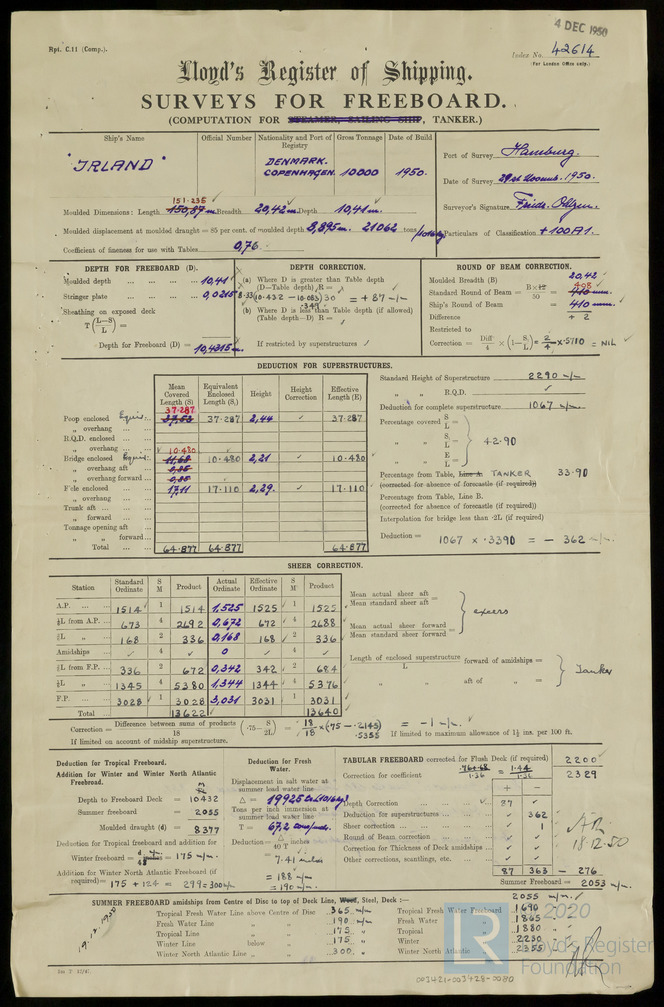 4 DEC 1950
Rpt. C.11 (Comp.).
Index No. 42614
(For London Office only.)
Lloyd's Register of Shipping.
SURVEYS FOR FREEBOARD.
(COMPUTATION FOR STEAMER, SAILING SHIP, TANKER.)
Ship's Name Official Number Nationality and Port of Registry Gross Tonnage Date of Build
"IRLAND" DENMARK. COPENHAGEN. 10000 1950.
Port of Survey Hamburg.
Date of Survey 29th Novemb. 1950.
Surveyor's Signature
Particulars of Classification +100A1.
151.235
Moulded Dimensions: Length 150,87 m. Breadth 20,42 m. Depth 10,41 m.
Moulded displacement at moulded draught = 85 per cent. of moulded depth 8,895m. 21062 tons
Coefficient of fineness for use with Tables 0,76
DEPTH FOR FREEBOARD (D).
Moulded depth 10,41
Stringer plate 0,0215
Sheathing on exposed deck
T (L-S/L) =
Depth for Freeboard (D) = 10,4315m
DEPTH CORRECTION.
(a) Where D is greater than Table depth
(D—Table depth) R =
8.33 (10.432 - 10.083) 30 = + 87 -/-
.349
(b) Where D is less than Table depth (if allowed)
(Table depth—D) R =
If restricted by superstructures
ROUND OF BEAM CORRECTION.
Moulded Breadth (B) 20,42
Standard Round of Beam = B×12/50 = 408
Ship's Round of Beam = 410
Difference + 2
Restricted to
Correction = Diff/4 × (1-S/L) = 2/4 × .5710 = NIL
DEDUCTION FOR SUPERSTRUCTURES.
Mean Covered Length (S) Equivalent Enclosed Length (S₁) Height Height Correction Effective Length (E)
37.287
Poop enclosed Equiv: 37,53 37.287 2,44 37.287
„ overhang
R.Q.D. enclosed
„ overhang 10.480
Bridge enclosed Equiv: 11,68 10.480 2,21 10.480
„ overhang aft 0,85
„ overhang forward 0,85
F'cle enclosed 17,11 17.110 2,29. 17.110
„ overhang
Trunk aft
„ forward
Tonnage opening aft
„ „ forward
Total 64.877 64.877 64.877
Standard Height of Superstructure 2290 -/-
„ „ R.Q.D.
Deduction for complete superstructure 1067 -/-
Percentage covered S/L =
„ „ S₁/L = 42.90
„ „ E/L =
Percentage from Table, Line A. TANKER 33.90
(corrected for absence of forecastle (if required))
Percentage from Table, Line B.
(corrected for absence of forecastle (if required))
Interpolation for bridge less than .2L (if required)
Deduction = 1067 × .3390 = - 362 -/-
SHEER CORRECTION.
Station Standard Ordinate S M Product Actual Ordinate Effective Ordinate S M Product
A.P. 1514 1 1514 1,525 1525 1 1525
⅙L from A.P. 673 4 2692 0,672 672 4 2688
⅓L „ 168 2 336 0,168 168 2 336
Amidships 4 0 4
⅓L from F.P. 336 2 672 0,342 342 2 684
⅙L „ 1345 4 5380 1,344 1344 4 5376
F.P. 3028 1 3028 3,031 3031 1 3031
Total 13622 13640
Mean actual sheer aft =
Mean standard sheer aft
Mean actual sheer forward =
Mean standard sheer forward
excess
Length of enclosed superstructure / L forward of amidships =
„ „ aft of „ =
Tanker
Correction = Difference between sums of products / 18 (.75 - S/2L) = 18/18 × (.75 - .2145) = -1 -/-.
.5355
If limited on account of midship superstructure.
If limited to maximum allowance of 1½ ins. per 100 ft.
Deduction for Tropical Freeboard.
Addition for Winter and Winter North Atlantic Freeboard.
Depth to Freeboard Deck = 10432
Summer freeboard = 2055
Moulded draught (d) = 8377
Deduction for Tropical freeboard and addition for
Winter freeboard = d/48 = 175 -/-
Addition for Winter North Atlantic Freeboard (if required) = 175 + 124 = 299 = 300 -/-
Deduction for Fresh Water.
Displacement in salt water at summer load water line
Δ = 19925
Tons per inch immersion at summer load water line
T = 67,2 tons/inch.
Deduction = Δ/40 T inches
= 7.41 inches
= 188 -/-
= 190 -/-
TABULAR FREEBOARD corrected for Flush Deck (if required) 2200
Correction for coefficient .76+.68/1.36 = 1.44/1.36 2329
+ -
Depth Correction 87
Deduction for superstructures 362
Sheer correction 1
Round of Beam correction
Correction for Thickness of Deck amidships
Other corrections, scantlings, etc.
87 363 - 276
Summer Freeboard = 2053 -/-
18.12.50
SUMMER FREEBOARD amidships from Centre of Disc to top of Deck Line, Wood, Steel, Deck :— 2055 -/-
Tropical Fresh Water Line above Centre of Disc 365 -/- Tropical Fresh Water Freeboard 1690
Fresh Water Line „ „ 190 -/- Fresh Water „ 1865
Tropical Line „ „ 175 „ Tropical „ 1880
Winter Line below „ 175 „ Winter „ 2230
Winter North Atlantic Line „ „ 300 „ Winter North Atlantic „ 2355
19.12.1950
LR
2020
Lloyd's Register
Foundation
003421-003428-0080